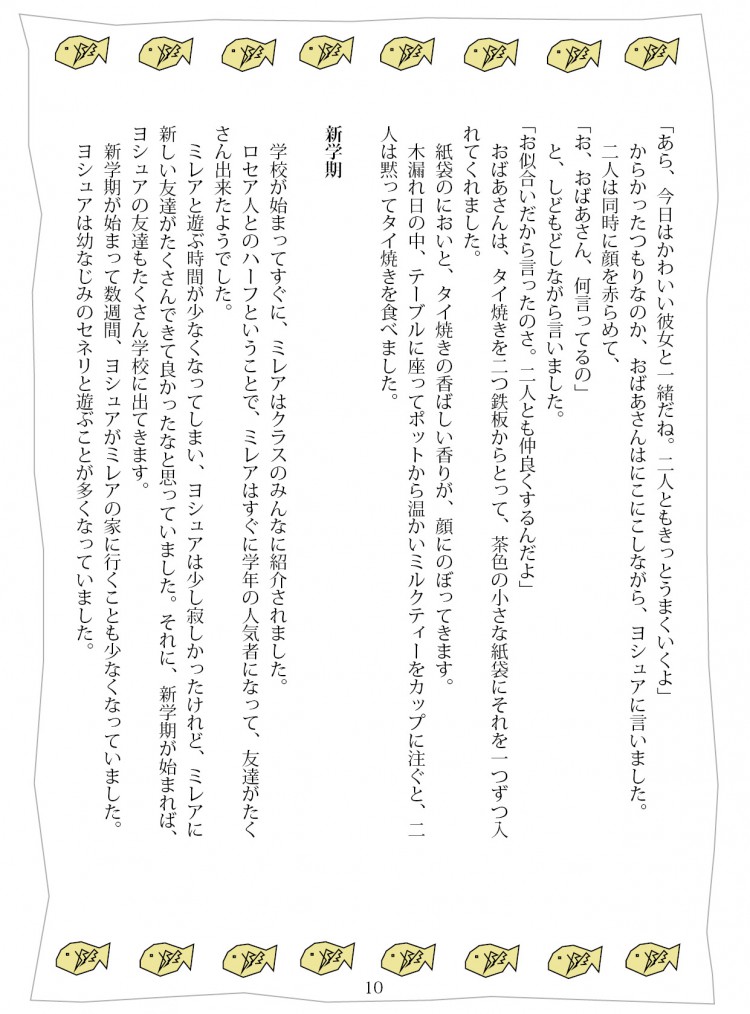 「あら、今日はかわいい彼女と一緒だね。二人ともきっとうまくいくよ」
からかったつもりなのか、おばあさんはにこにこしながら、ヨシュアに言いました。
二人は同時に顔を赤らめて、
「お、おばあさん、何言ってるの」
と、しどもどしながら言いました。
「お似合いだから言ったのさ。二人とも仲良くするんだよ」
おばあさんは、タイ焼きを二つ鉄板からとって、茶色の小さな紙袋にそれを一つずつ入
れてくれました。
紙袋のにおいと、タイ焼きの香ばしい香りが、顔にのぼってきます。
木漏れ日の中、テーブルに座ってポットから温かいミルクティーをカップに注ぐと、二
人は黙ってタイ焼きを食べました。
新学期
学校が始まってすぐに、ミレアはクラスのみんなに紹介されました。
ロセア人とのハーフということで、ミレアはすぐに学年の人気者になって、友達がたく
さん出来たようでした。
ミレアと遊ぶ時間が少なくなってしまい、ヨシュアは少し寂しかったけれど、ミレアに
新しい友達がたくさんできて良かったなと思っていました。それに、新学期が始まれば、
ヨシュアの友達もたくさん学校に出てきます。
新学期が始まって数週間、ヨシュアがミレアの家に行くことも少なくなっていました。
ヨシュアは幼なじみのセネリと遊ぶことが多くなっていました。
10